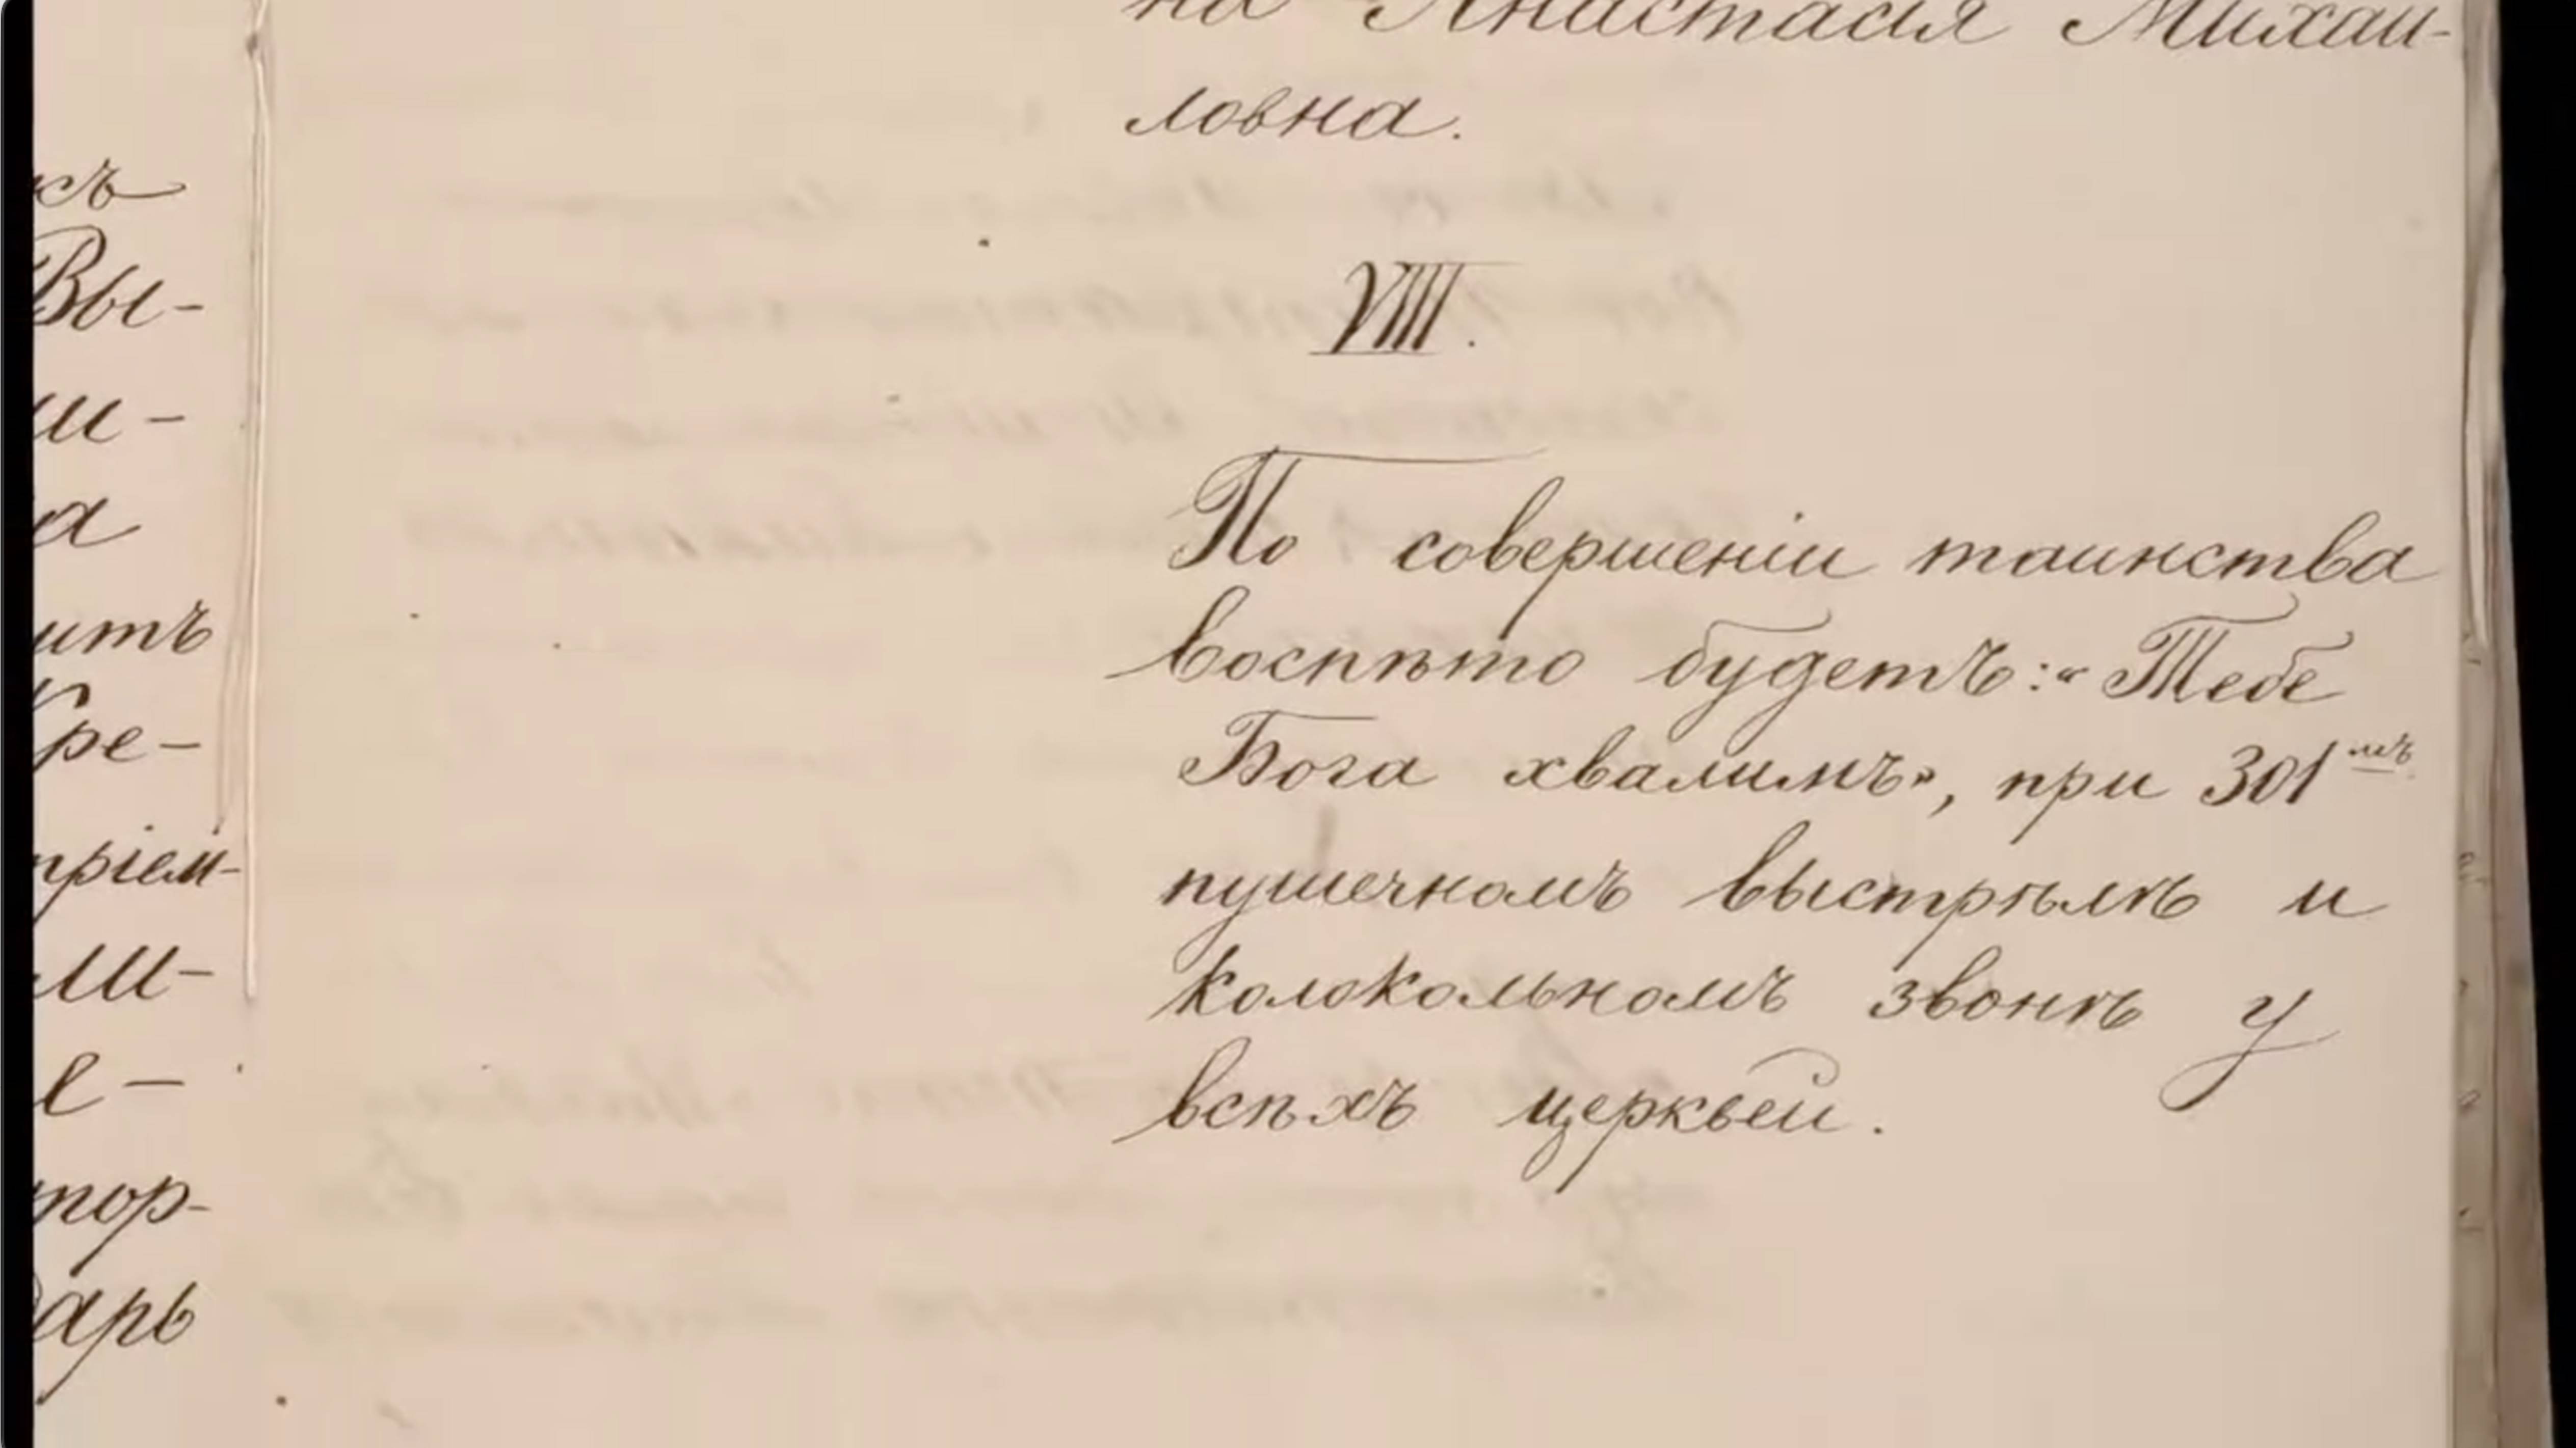 съ
Вы-
ли-
а
итъ
Кре-
пріем-
ли-
е-
тор-
дарь
на Анастасія Михаи-
ловна.
VIIII.
По совершеніи таинства
воспѣто будетъ: «Тебе
Бога хвалимъ», при 301мъ
пушечномъ выстрѣлѣ и
колокольномъ звонѣ у
всѣхъ церквей.